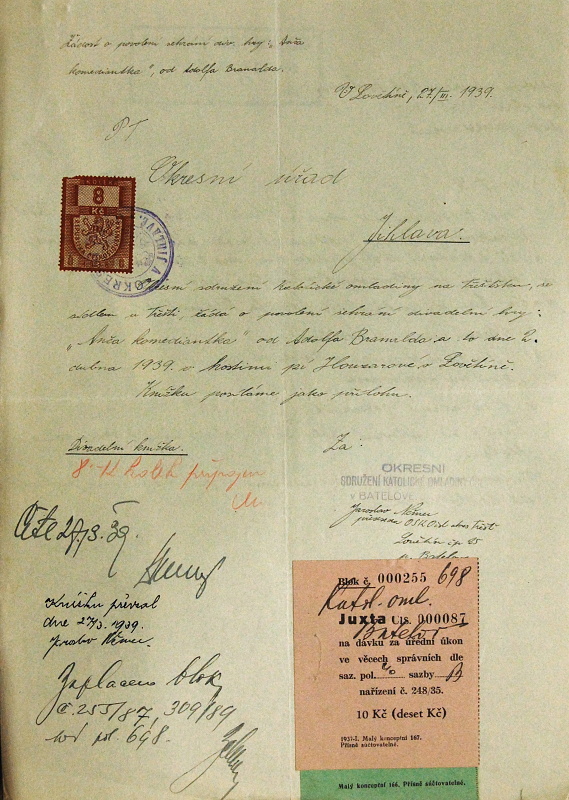 Žádost o povolení sehrání div. hry: „Anča
komediantka", od Adolfa Branalda.
V Lovětíně, 27./III. 1939.
PT
Okresní úřad
Jihlava.
KOLEK
8
Kč
8 8
Okresní sdružení katolické omladiny na Třešťsku, se
sídlem v Třešti, žádá o povolení sehrání divadelní hry:
„Anča komediantka" od Adolfa Branalda a to dne 2.
dubna 1939. v hostinci pí Housarové, v Lovětíně.
Knížku posíláme jako přílohu.
Divadelní knížka.
Za:
8 Kč kolek připojen
OKRESNÍ
SDRUŽENÍ KATOLICKÉ OMLADINY
V BATELOVĚ
Jaroslav Němec
Lovětín čp. 25
p. Batelov
Čte 27/3. 39.
Knihu převzal
dne 27/3. 1939.
Němec.
Zaplaceno blok
č. 255/87, 309/89
pol. 698.
Blok č. 000255 698
Katol. oml.
Juxta čís. 000087
Batelov
na dávku za úřední úkon
ve věcech správních dle
saz. pol. sazby B
nařízení č. 248/35.
10 Kč (deset Kč)
1937-I. Malý konceptní 167.
Přísně súčtovatelné.
Malý konceptní 166. Přísně súčtovatelné.